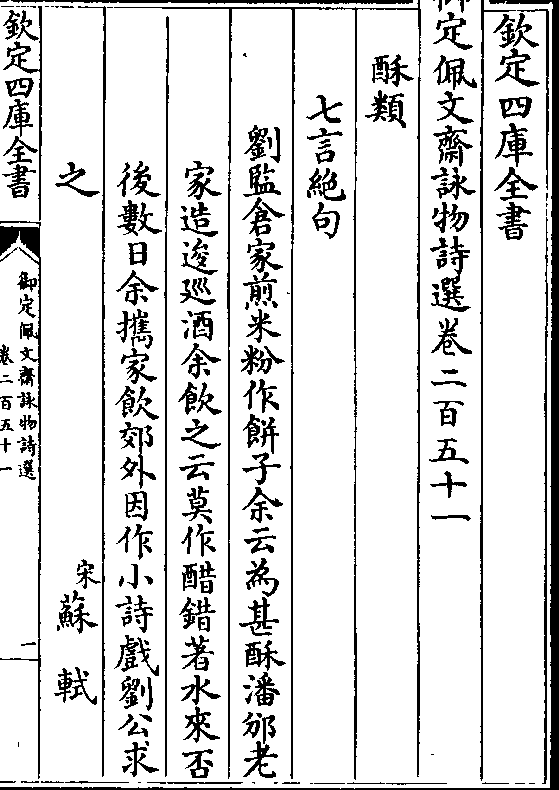 欽定四庫全書
御定佩文齋詠物詩選卷二百五十一
酥類
七言絶句
劉監倉家煎米粉作餅子余云為甚酥潘邠老
家造逡廵酒余飲之云莫作醋錯著水來否
後數日余攜家飲郊外因作小詩戲劉公求
之
宋蘇軾
欽定四庫全書
御定佩文齋詠物詩選
卷二百五十一
一